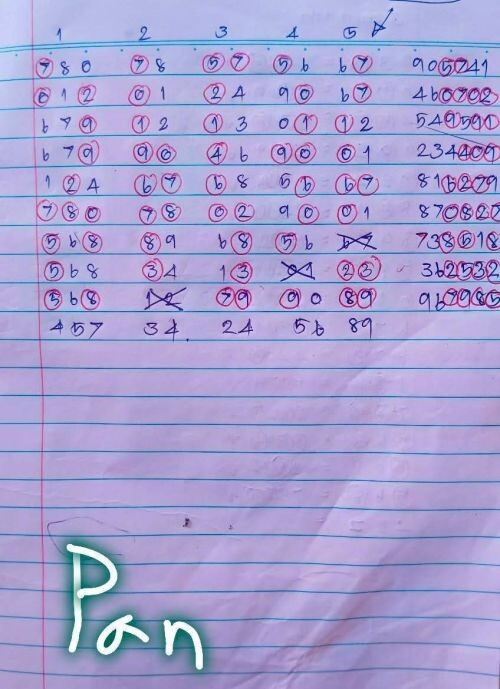 1 2 3 4 5
7 8 0 7 8 5 7 5 6 6 7 905741
0 1 2 0 1 2 4 9 0 6 7 460702
6 7 9 1 2 1 3 0 1 1 2 549591
6 7 9 9 0 4 6 9 0 0 1 234409
1 2 4 6 7 6 8 5 6 6 7 816279
7 8 0 7 8 0 2 9 0 0 1 870827
5 6 8 8 9 6 8 5 6 6 7 738518
5 6 8 3 4 1 3 0 1 2 3 362532
5 6 8 1 2 7 9 9 0 8 9 967985
4 5 7 3 4 2 4 5 6 8 9
Pan